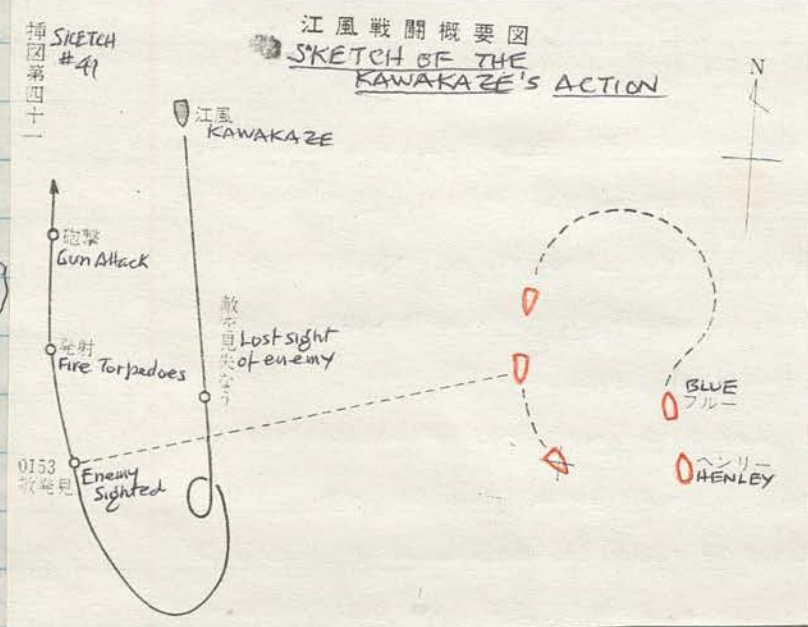 江風戦闘概要図
SKETCH OF THE
KAWAKAZE'S ACTION
挿図第四十一
SKETCH
#41
N
江風
KAWAKAZE
砲撃
Gun Attack
発射
Fire Torpedoes
敵を見失なう
Lost sight
of enemy
0153
敵発見
Enemy
Sighted
BLUE
ブルー
ヘンリー
HENLEY